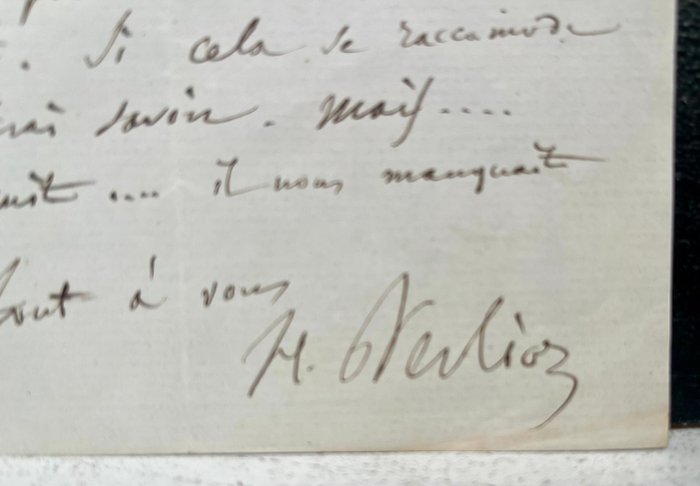 . Si cela se raccamode
rai savoir. mais....
.... il nous manquait
tout à vous
H. Berlioz